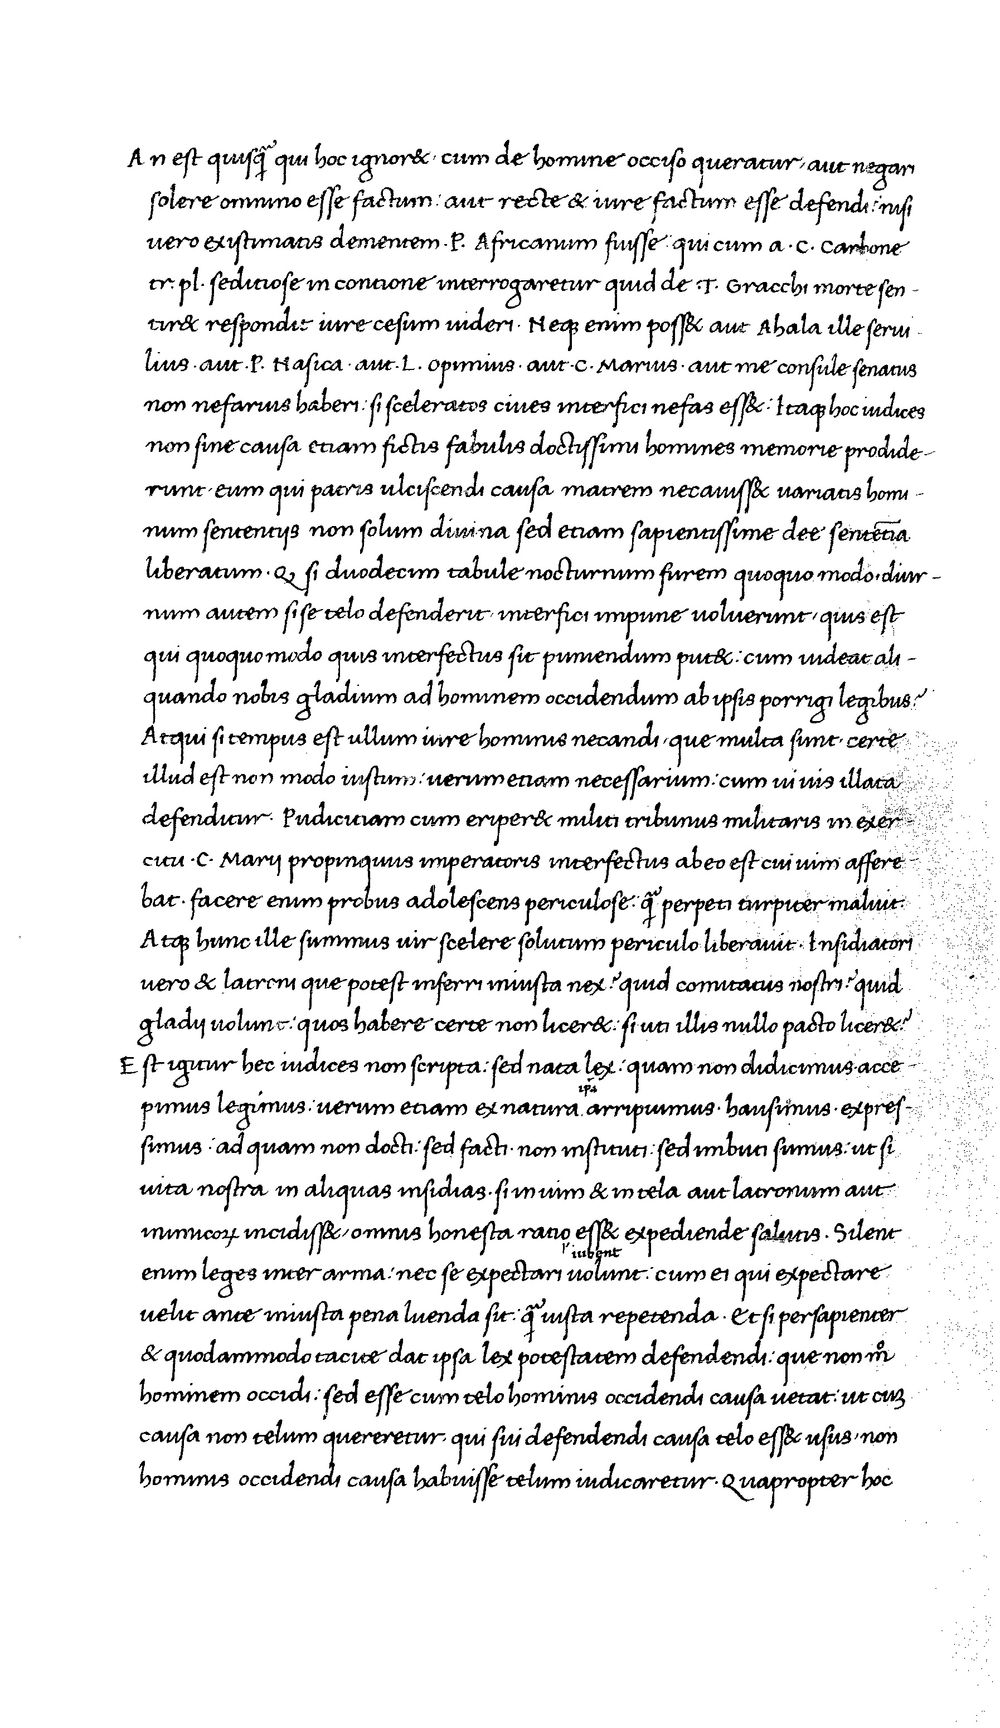 An est quisq̄ qui hoc ignor&· cum de homine occiso queratur, aut negari
solere omnino esse factum: aut recte & iure factum esse defendi: nisi
uero existimatis dementem · P. Africanum fuisse: qui cum a · C · Carbone
tr: pl · seditiose in contione interrogaretur quid de · T · Gracchi morte sen-
tir& respondit iure cesum uideri · Neq; enim poss& aut Ahala ille serui-
lius · aut · P. Nasica · aut · L. Opimius · aut · C · Marius · aut me consule senatus
non nefarius haberi: si sceleratos ciues interfici nefas ess&: Itaq; hoc iudices
non sine causa etiam fictis fabulis doctissimi homines memorie prodide-
runt · eum qui patris ulciscendi causa matrem necauiss& uariatis homi-
num sententijs non solum diuina sed etiam sapientissime dee sentētia
liberatum · Q; si duodecim tabule nocturnum furem quoquo modo, diur-
num autem si se telo defenderit, interfici impune uoluerunt, quis est
qui quoquo modo quis interfectus sit puniendum put&: cum uideat ali-
quando nobis gladium ad hominem occidendum ab ipsis porrigi legibus?
Atqui si tempus est ullum iure hominis necandi, que multa sunt, certe
illud est non modo iustum: uerum etiam necessarium: cum ui uis illata
defenditur · Pudicitiam cum eriper& militi tribunus militaris in exer-
citu · C · Marij propinquus imperatoris interfectus ab eo est cui uim affere-
bat · facere enim probus adolescens periculose: q̄ perpeti turpiter maluit:
Atq; hunc ille summus uir scelere solutum periculo liberauit · Insidiatori
uero & latroni que potest inferri iniusta nex? quid comitatus nostri? quid
gladij uolunt: quos habere certe non licer&: si uti illis nullo pacto licer&?
Est igitur hec iudices non scripta: sed nata lex: quam non didicimus · acce-
pimus legimus: uerum etiam ex natura ip̄a arripuimus · hausimus · expres-
simus: ad quam non docti: sed facti · non instituti: sed imbuti sumus: ut si
uita nostra in aliquas insidias · si in uim & in tela aut latronum aut
inimicoꝝ incidiss&, omnis honesta ratio ess& expediende salutis · Silent
l' iubent
enim leges inter arma: nec se expectari uolunt: cum ei qui expectare
uelit ante iniusta pena luenda sit: q̄ iusta repetenda · Et si persapienter
& quodammodo tacite dat ipsa lex potestatem defendendi: que non mͦ
hominem occidi: sed esse cum telo hominis occidendi causa uetat: ut cuꝫ
causa non telum quereretur · qui sui defendendi causa telo ess& usus, non
hominis occidendi causa habuisse telum iudicaretur · Quapropter hoc